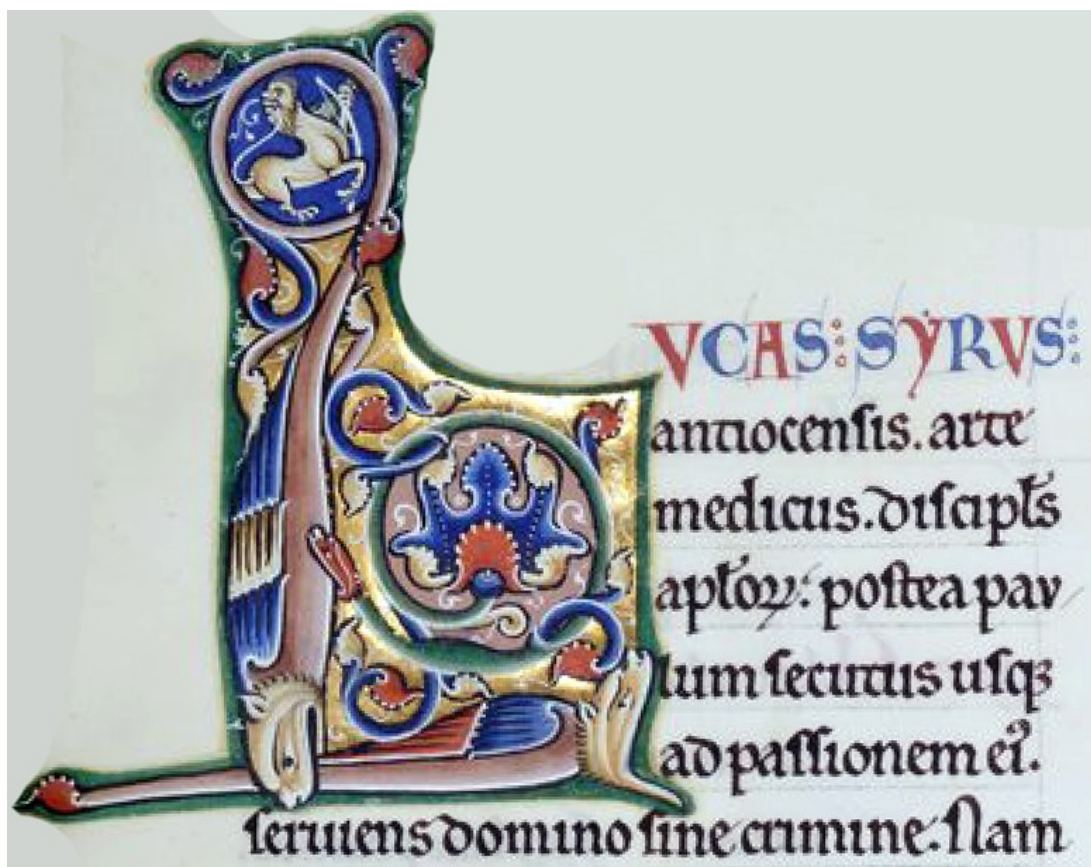 LVCAS: SYRVS:
antiocensis. arte
medicus. discipl̅s
apl̅oꝝ: postea pau
lum secutus usqꝫ
ad passionem ei᷒.
seruiens domino sine crimine: Nam